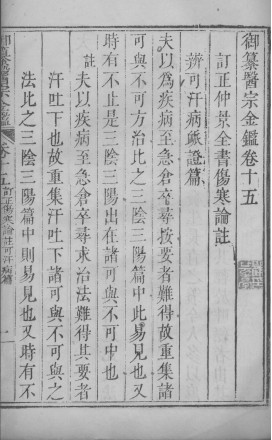 御纂醫宗金鑑卷十五
訂正仲景全書傷寒論註
辨可汗病脈證篇
夫以為疾病至急倉卒尋按要者難得故重集諸
可與不可方治比之三陰三陽篇中此易見也又
時有不止是三陰三陽出在諸可與不可中也
註
夫以疾病至急倉卒尋求治法難得其要者
汗吐下也故重集汗吐下諸可與不可與之
法比之三陰三陽篇中則易見也又時有不